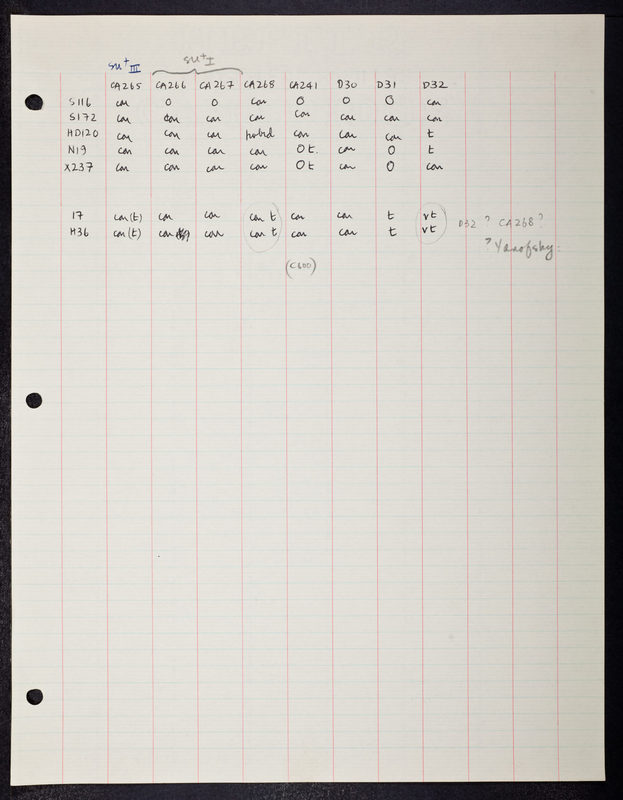 su+III su+I
CA265 CA266 CA267 CA268 CA241 D30 D31 D32
S116 con O O con O O O con
S172 con con con con con con con con
HD120 con con con con con con t
N19 con con con con O t. con O t
X237 con con con con O t con O con
17 con (t) con con con t con con t vt D32 ? CA268 ?
H36 con (t) con con con t con con t vt ? Yanofsky :
(C600)